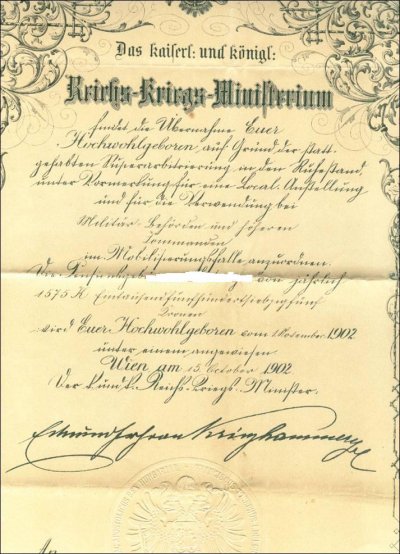 Das kaiserl: und königl:
Reichs-Kriegs-Ministerium
findet die Übernahme Euer
Hochwohlgeboren, auf Grund der statt-
gehabten Superarbitrierung in den Ruhestand
unter Vormerkung für eine Local-Anstellung
und für die Verwendung bei
Militär-Behörden und höheren
Commanden
im Mobilisierungsfalle anzuordnen.
Die von jährlich
1575 K Eintausendfünfhundertsiebzigfünf
Kronen
wird Euer Hochwohlgeboren vom 1. November 1902
unter einem angewiesen
Wien am 15. October 1902
Der k. und k. Reichs-Kriegs-Minister.
An